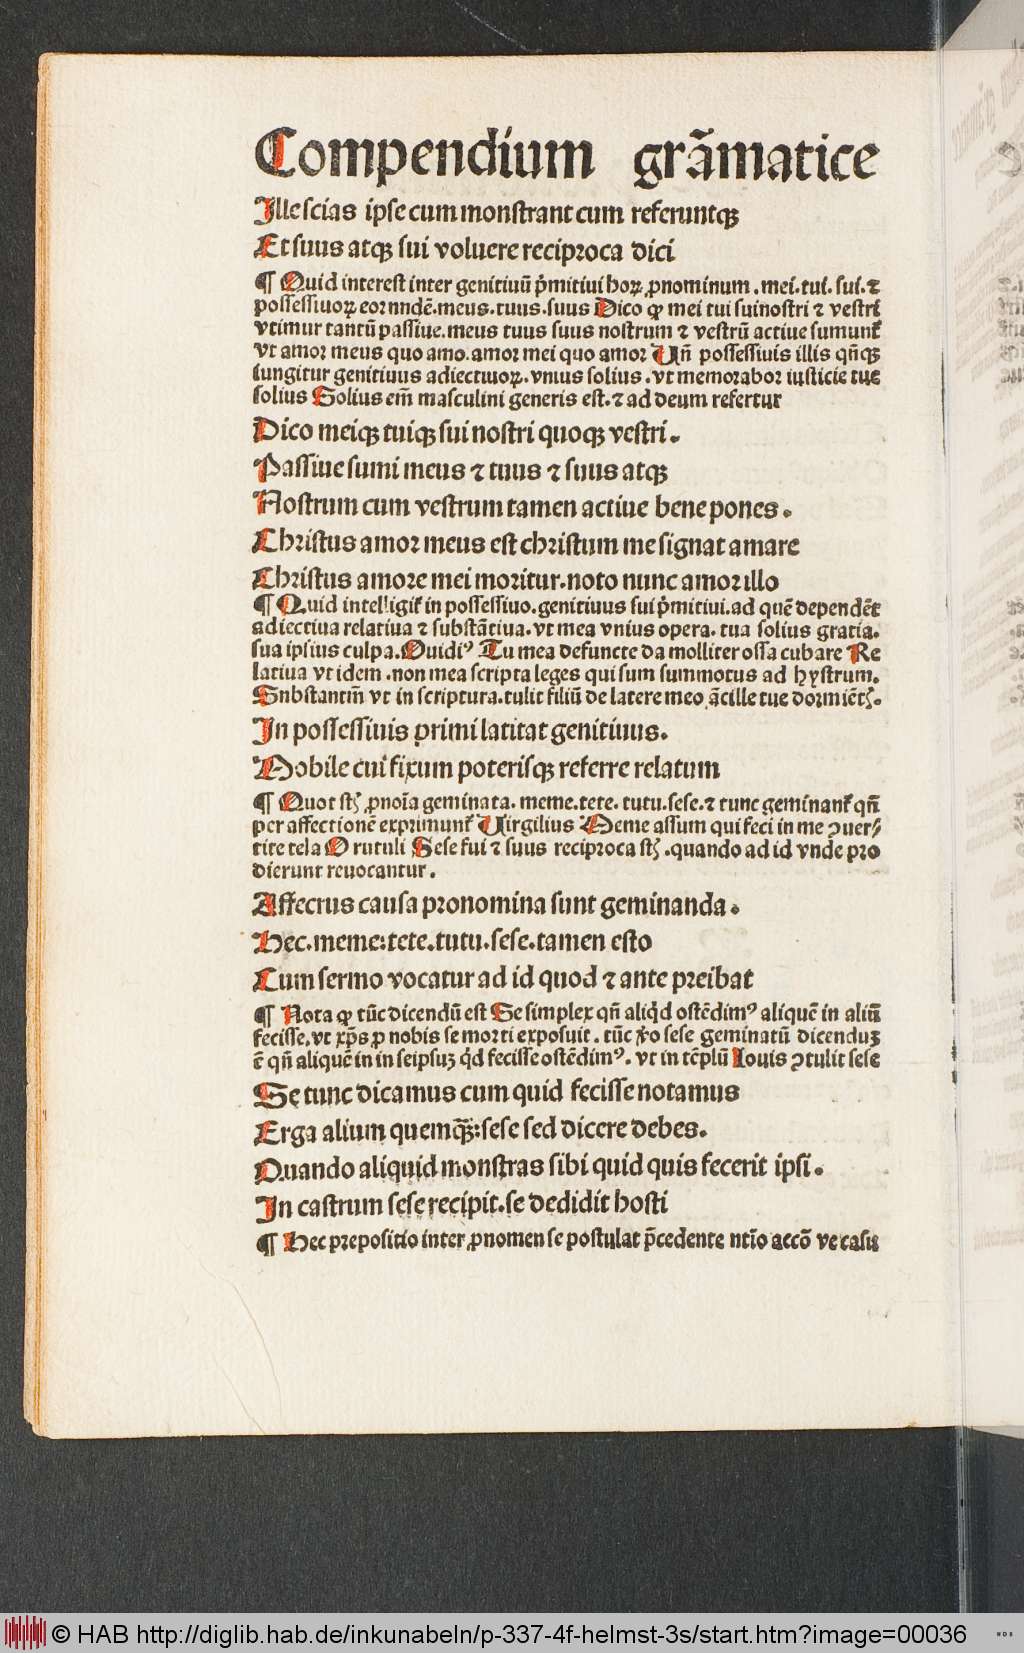 Compendium grãmatice
Ille scias ipse cum monstrant cum referuntqꝫ
Et suus atqꝫ sui voluere reciproca dici
¶ Quid interest inter genitiuū p̃mitiui hoꝝ ꝓnominum . mei. tui. sui. ⁊
possessiuoꝝ eorundē. meus. tuus. suus Dico ꝙ mei tui sui nostri ⁊ vestri
vtimur tantū passiue. meus tuus suus nostrum ⁊ vestrū actiue sumunt᷑
Vt amor meus quo amo. amor mei quo amor Vñ possessiuis illis qñqꝫ
iungitur genitiuus adiectiuoꝝ. vnius solius . vt memorabor iusticie tue
solius Solius em̄ masculini generis est. ⁊ ad deum refertur
Dico meiqꝫ tuiqꝫ sui nostri quoqꝫ vestri.
Passiue sumi meus ⁊ tuus ⁊ suus atqꝫ
Nostrum cum vestrum tamen actiue bene pones .
Christus amor meus est christum me signat amare
Christus amore mei moritur. noto nunc amor illo
¶ Quid intelligit᷑ in possessiuo. genitiuus sui p̃mitiui. ad quē dependēt
adiectiua relatiua ⁊ substātiua. vt mea vnius opera. tua solius gratia.
sua ipsius culpa. Ouidiꝰ Tu mea defuncte da molliter ossa cubare Re
latiua vt idem . non mea scripta leges qui sum summotus ad hystrum.
Snbstantiū vt in scriptura. tulit filiū de latere meo ācille tue dormiētꝭ.
In possessiuis primi latitat genitiuus.
Mobile cui fixum poterisqꝫ referre relatum
¶ Quot st̄ ꝓnoīa geminata. meme. tete. tutu. sese. ⁊ tunc geminant᷑ qñ
per affectionē exprimunt᷑ Virgilius Meme assum qui feci in me ꝯuer⸗
tite tela O rutuli Sese sui ⁊ suus reciproca st̄ . quando ad id vnde pro
dierunt reuocantur .
Affectus causa pronomina sunt geminanda .
Hec. meme: tete. tutu. sese. tamen esto
Cum sermo vocatur ad id quod ⁊ ante preibat
¶ Nota ꝙ tūc dicendū est Se simplex qñ aliqͥd ostēdimꝰ aliquē in aliū
fecisse. vt xp̄s ꝓ nobis se morti exposuit . tūc ꝟo sese geminatū dicenduꝫ
ē qñ aliquē in in seipsuꝫ qͥd fecisse ostēdimꝰ. vt in tēplū Iouis ꝯtulit sese
Se tunc dicamus cum quid fecisse notamus
Erga alium quemqꝫ: sese sed dicere debes.
Quando aliquid monstras sibi quid quis fecerit ipsi .
In castrum sese recipit. se dedidit hosti
¶ Hec prepositio inter ꝓnomen se postulat p̄cedente nt̄io accō ve casū
© HAB http://diglib.hab.de/inkunabeln/p-337-4f-helmst-3s/start.htm?image=00036